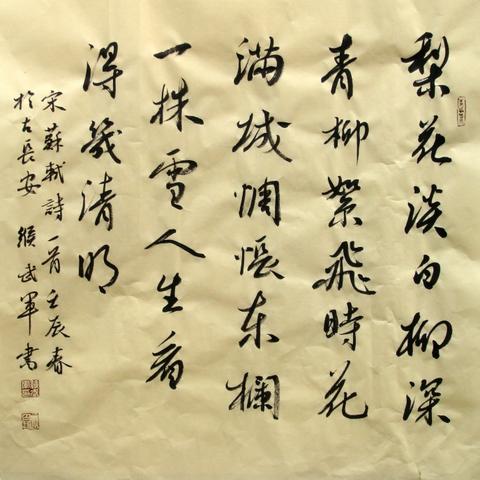 梨花淡白柳深
青柳絮飛時花
滿城惆悵東欄
一株雪人生看
得幾清明
宋蘇軾詩一首壬辰春
於古長安 緱武軍書